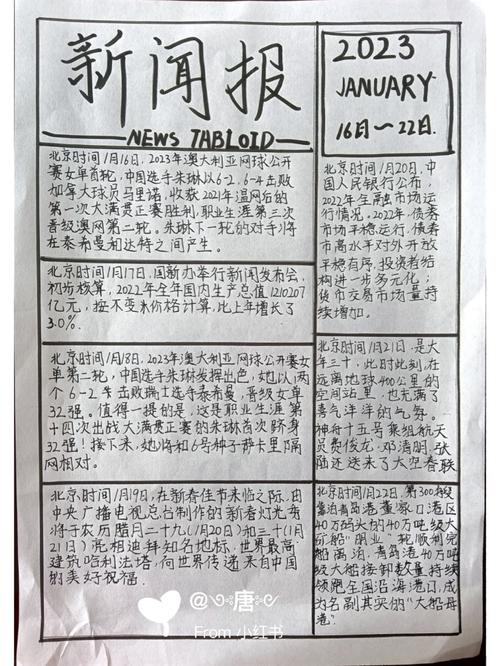 新闻报
NEWS TABLOID
2023
JANUARY
16日～22日.
北京时间1月16日,2023年澳大利亚网球公开
赛女单首轮,中国选手朱琳以6-2,6-4击败
加拿大球员马里诺,收获2021年温网后的
第一次大满贯正赛胜利,职业生涯第三次
晋级澳网第二轮。朱琳下一轮的对手将
在泰希曼和达特之间产生。
北京时间1月17日,国新办举行新闻发布会,
初步核算,2022年全年国内生产总值1210207
亿元,按不变价格计算,比上年增长了
3.0%.
北京时间1月18日,2023年澳大利亚网球公开赛女
单第二轮,中国选手朱琳发挥出色,她以两
个6-2击败瑞士选手泰希曼,晋级女单
32强。值得一提的是,这是职业生涯第
十四次出战大满贯正赛的朱琳首次跻身
32强!接下来,她将和6号种子萨卡里隔
网相对。
北京时间1月19日,在新春佳节来临之际,由
中央广播电视总台制作的新春灯光秀
将于农历腊月二十九(1月20日)和三十(1月
21日)亮相迪拜知名地标,世界最高
建筑哈利法塔,向世界传递来自中国
的美好祝福.
北京时间1月20日,中
国人民银行公布,
2022年金融市场运
行情况。2022年,债券
市场平稳运行,债券
市高水平对外开放
平稳有序,投资者结
构进一步多元化;
货币交易市场量持
续增加。
北京时间1月21日,是大
年三十,此时此刻,在
远离地球400公里的
空间站里,也充满了
喜气洋洋的气氛。
神舟十五号乘组航天
员费俊龙,邓清明,张
陆还送来了太空春联
北京时间1月22日,第300艘
靠泊青岛港董家口港区
40万码头的40万吨级大
矿船“明业”轮顺利完
船离泊,青岛港40万吨
级大船接卸数量持续
领跑全国沿海港口,成
为名副其实的“大船母
港”
@唐
From 小红书